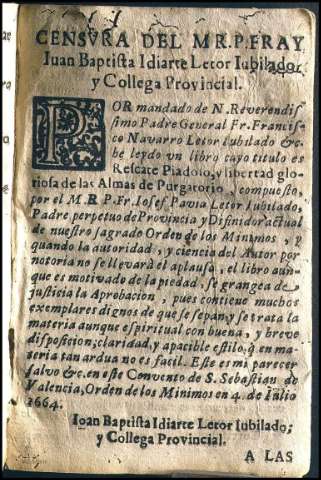 CENSVRA DEL M R.P. FRAY
Iuan Baptista Idiarte Letor Iubilador
y Collega Provincial.
POR mandado de N. Reverendis
simo Padre General Fr. Francis-
co Navarro Letor Iubilado &c.
he leydo vn libro cayo titulo es
Rescate Piadoso, y libertad glo-
riosa de las Almas de Purgatorio, compuesto,
por el M. R P. Fr. Iosef Pavia Letor Iubilado,
Padre perpetuo de Provincia y Difinidor actual
de nuestro sagrado Orden de los Minimos, y
quando la autoridad, y ciencia del Autor por
notoria no se llevarà el aplauso, el libro aun-
que es motivado de la piedad, se grangea de
justicia la Aprobacion, pues contiene muchos
exemplares dignos de que se sepan, y se trata la
materia aunque espiritual con buena, y breve
disposicion, claridad, y apacible estilo, q̃ en ma-
teria tan ardua no es facil. Este es mi parecer
salvo &c. en este Convento de S. Sebastian de
Valencia, Orden de los Minimos en 4. de Iulio
1664.
Ioan Baptista Idiarte Letor Iubilado;
y Collega Provincial.
A LAS